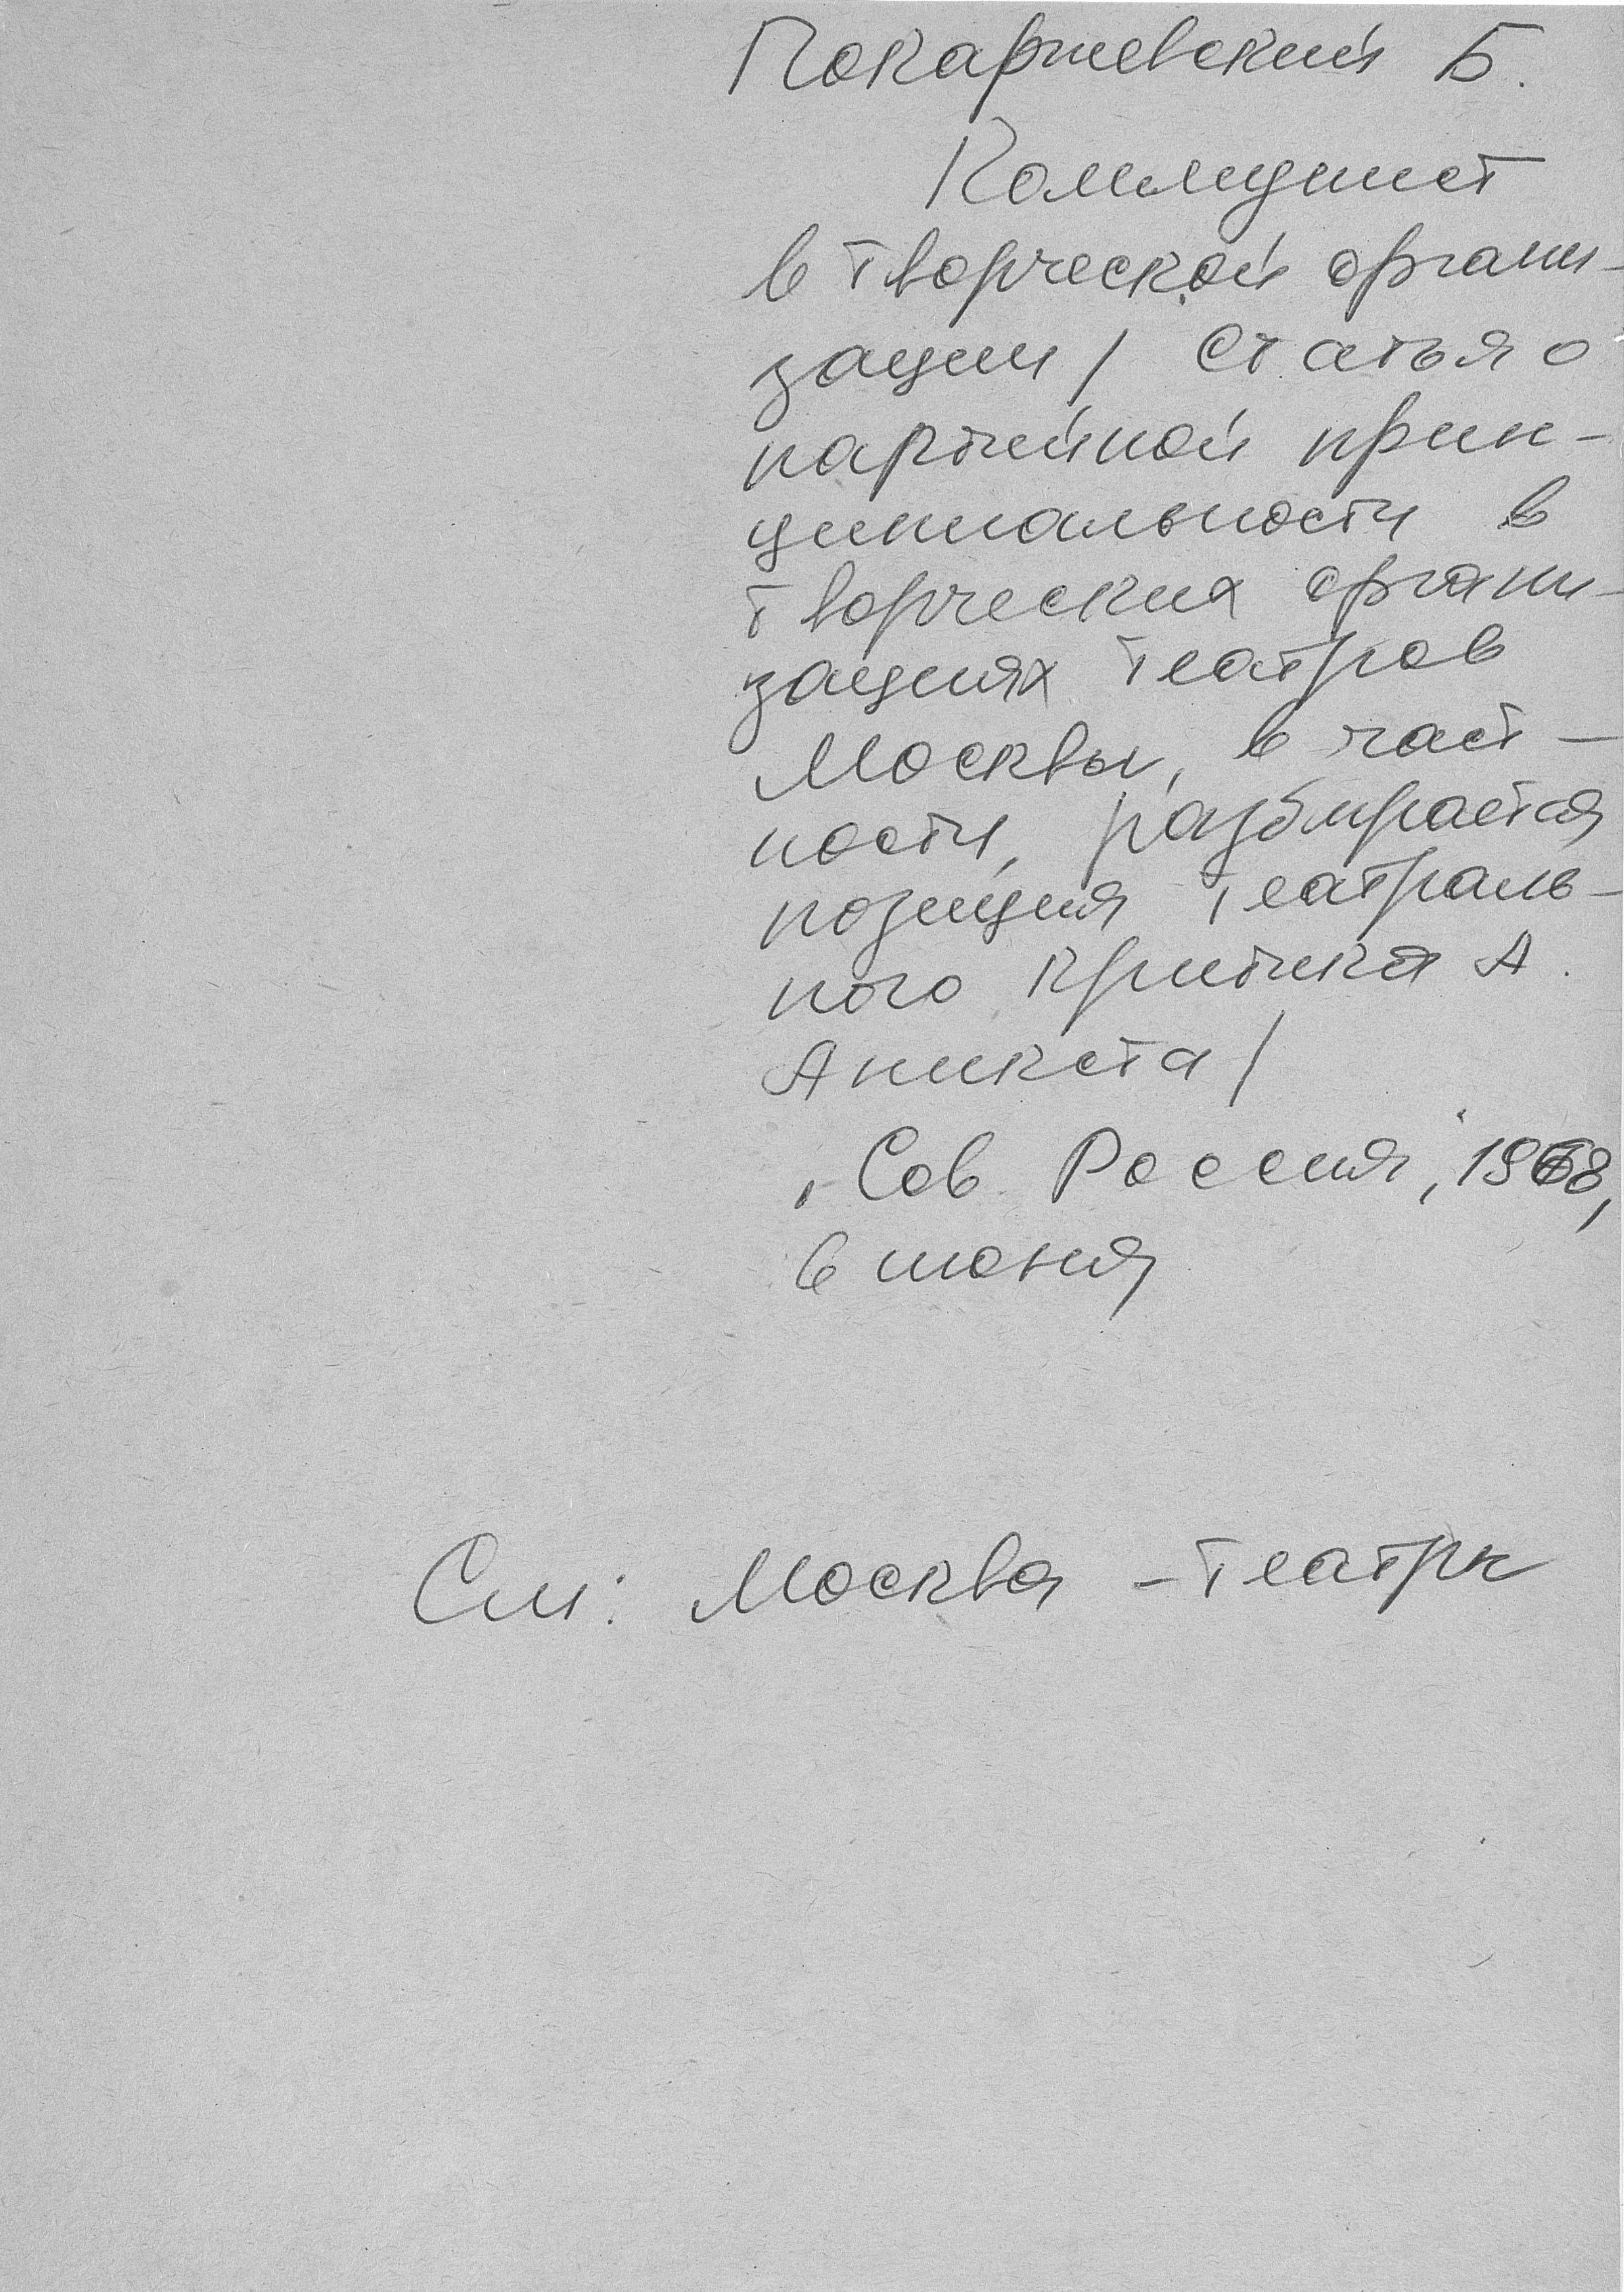 Покаржевский Б.
Коммунист
в творческой органи-
зации / Статья о
партийной прин-
ципиальности в
творческих органи-
зациях театров
Москвы, в част-
ности, разбирается
позиция театраль-
ного критика А.
Аникста /
„Сов. Россия", 1968,
6 июня
См: Москва - театры